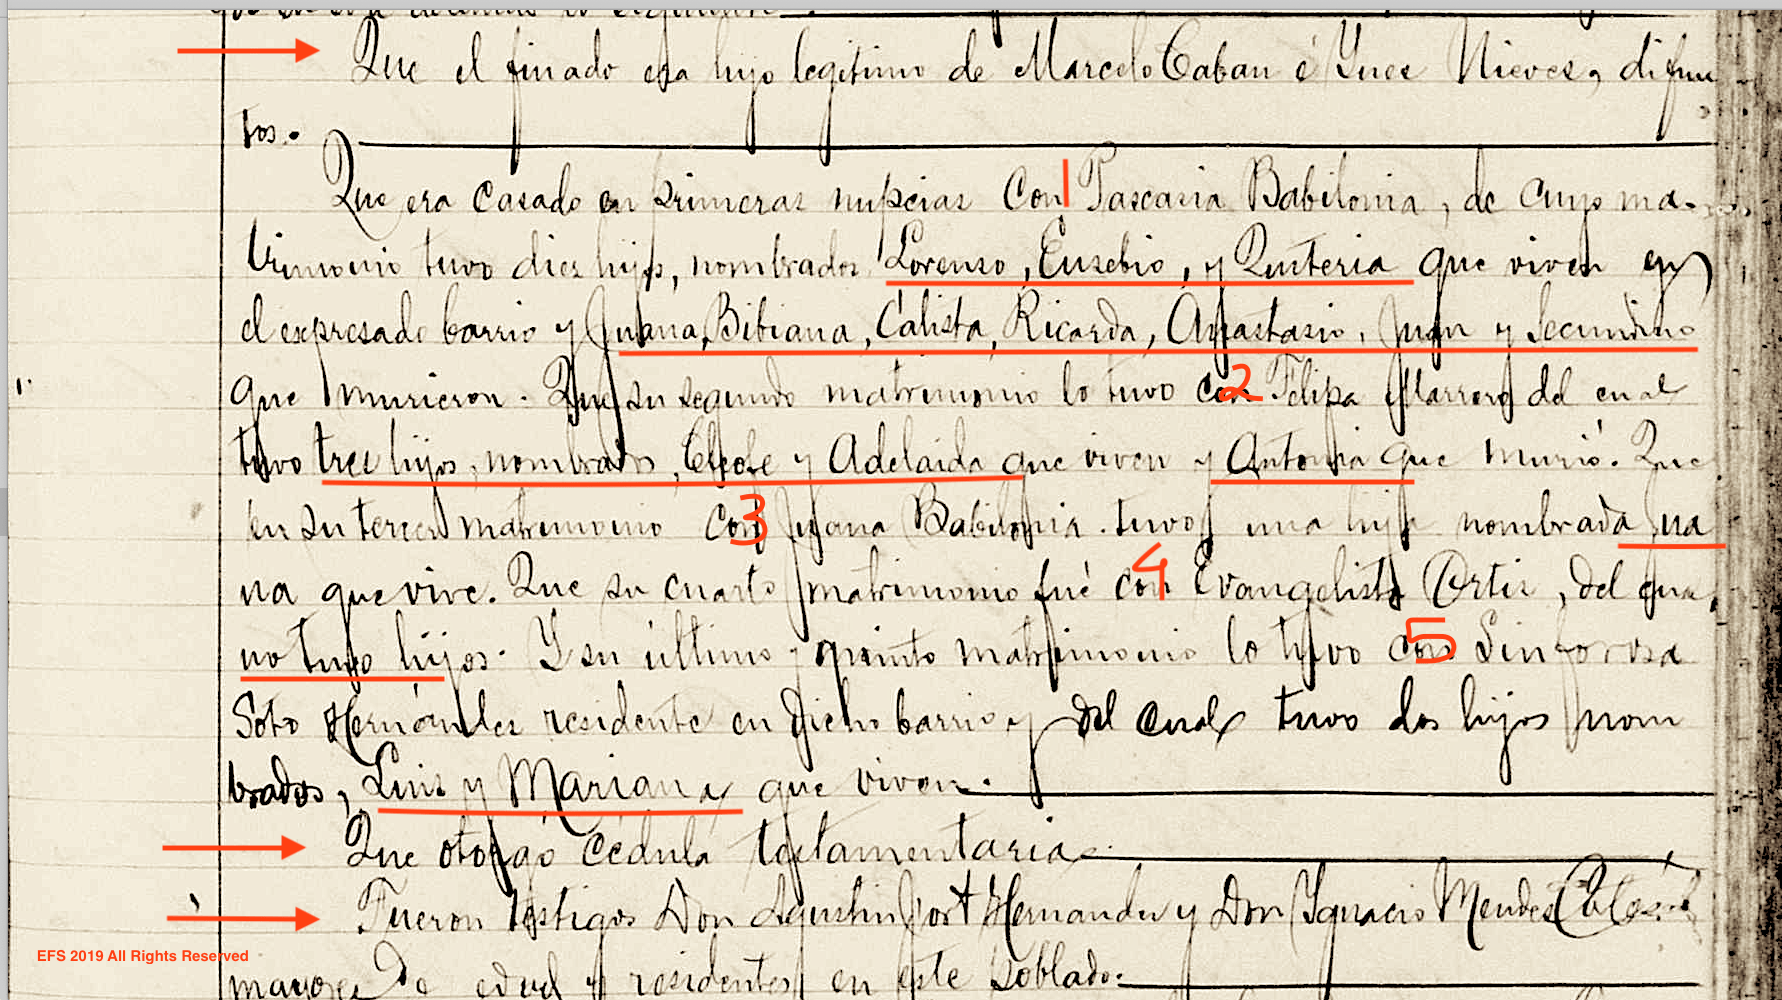 Que el finado era hijo legitimo de Marcelo Caban é Ynes Nieves, difun
tos.
Que era casado en primeras nupcias con 1 Pascasia Babilonia, de cuyo ma-
trimonio tuvo dies hijos, nombrados Lorenso, Eusebio, y Quiteria que viven en
el expresado barrio y Juana, Bibiana, Calista, Ricarda, Anastasio, Juan y Secundino
que murieron. Que su segundo matrimonio lo tuvo con 2 Felipa Marrero del cual
tuvo tres hijos, nombrados, Cleofe y Adelaida que viven y Antonia que murió. Que
en su tercer matrimonio con 3 Juana Babilonia tuvo una hija nombrada Jua
na que vive. Que su cuarto matrimonio fué con 4 Evangelista Ortiz, del cual
no tuvo hijos. Y su último y quinto matrimonio lo tuvo con 5 Sinforosa
Soto Hernández residente en dicho barrio y del cual tuvo dos hijos nom
brados, Luis y Mariana que viven.
Que otorgó cédula testamentaria
Fueron testigos Don Agustin Font Hernandez y Don Ygnacio Mendez
EFS 2019 All Rights Reserved
mayores de edad y residentes en este poblado.